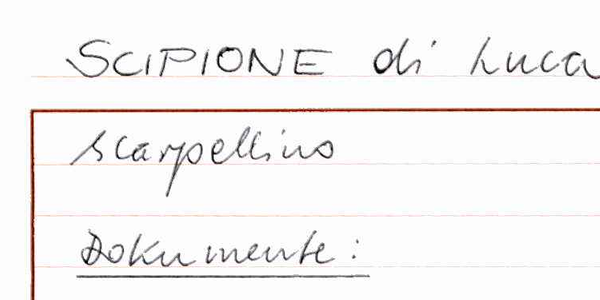 SCIPIONE di Luca
scarpellino
Dokumente: